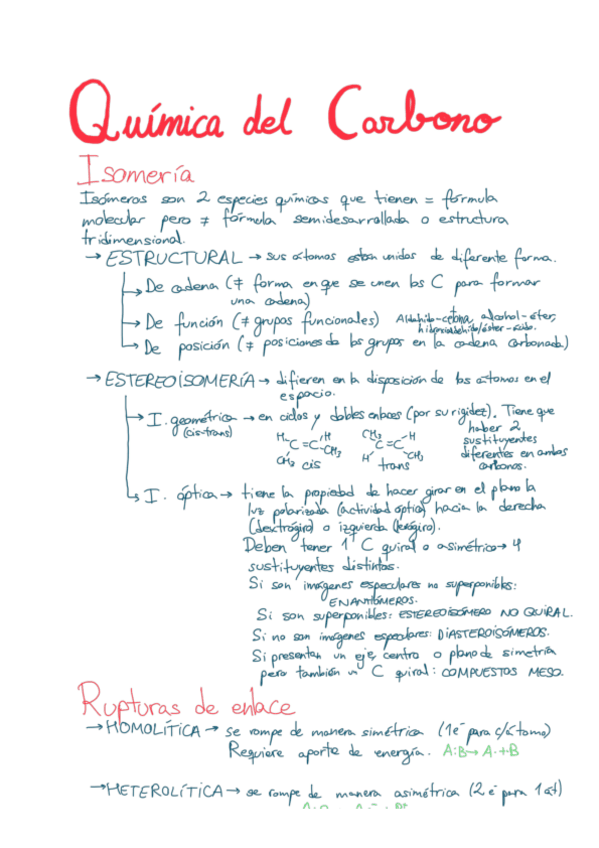 Química del Carbono
Isomería
Isómeros son 2 especies químicas que tienen = fórmula
molecular pero ≠ fórmula semidesarrollada o estructura
tridimensional.
→ ESTRUCTURAL → sus átomos están unidos de diferente forma.
↳ De cadena (≠ forma en que se unen los C para formar
una cadena)
↳ De función (≠ grupos funcionales) Aldehído-cetona, alcohol-éter,
hidroxialdehído/éster-ácido.
↳ De posición (≠ posiciones de los grupos en la cadena carbonada)
→ ESTEREOISOMERÍA → difieren en la disposición de los átomos en el
espacio.
↳ I. geométrica → en ciclos y dobles enlaces (por su rigidez). Tiene que
(cis-trans) haber 2
sustituyentes
diferentes en ambos
carbonos.
H H CH3 H
C=C C=C
CH3 CH3 H CH3
cis trans
↳ I. óptica → tiene la propiedad de hacer girar en el plano la
luz polarizada (actividad óptica) hacia la derecha
(dextrógiro) o izquierda (levógiro).
Deben tener 1 C quiral o asimétrico → 4
sustituyentes distintos.
Si son imágenes especulares no superponibles:
ENANTIÓMEROS.
Si son superponibles: ESTEREOISÓMERO NO QUIRAL.
Si no son imágenes especulares: DIASTEROISÓMEROS.
Si presentan un eje, centro o plano de simetría
pero también un C quiral: COMPUESTOS MESO.
Rupturas de enlace
→ HOMOLÍTICA → se rompe de manera simétrica (1é para c/átomo)
Requiere aporte de energía. A:B → A·+B
→ HETEROLÍTICA → se rompe de manera asimétrica (2 é para 1 át)